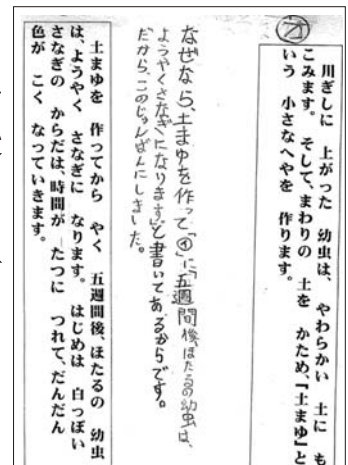 オ
川ぎしに　上がった　幼虫は、　やわらかい　土に　も
こみます。　そして、まわりの　土を　かため、『土まゆ』と
いう　小さなへやを　作ります。
なぜなら、土まゆを作って「④」に「五週間後、ほたるの幼虫は、
ようやくさなぎになります」と書いてあるからです。
だから、このじゅんばんにしました。
土まゆを　作ってから　やく　五週間後、ほたるの　幼虫
は、ようやく　さなぎに　なります。　はじめは　白っぽい
さなぎの　からだは、時間が　たつに　つれて、だんだん
色が　こく　なっていきます。